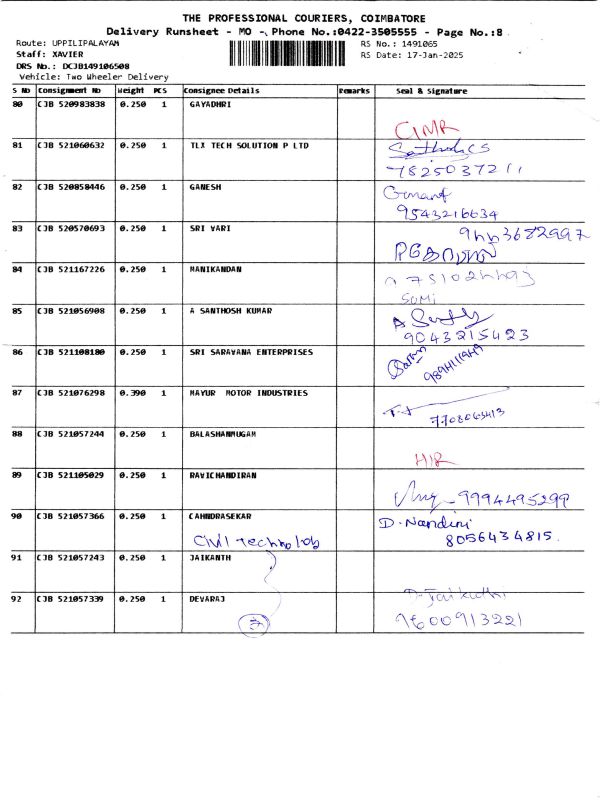 THE PROFESSIONAL COURIERS, COIMBATORE
Delivery Runsheet - MO -, Phone No.:0422-3505555 - Page No.:8
Route: UPPILIPALAYAM
RS No.: 1491065
Staff: XAVIER
RS Date: 17-Jan-2025
DRS No.: DCJB149106508
Vehicle: Two Wheeler Delivery
S No Consignment No Weight PCS Consignee Details Remarks Seal & Signature
80 CJB 520983838 0.250 1 GAYADHRI
CIMR
81 CJB 521060632 0.250 1 TLX TECH SOLUTION P LTD
7825037211
82 CJB 520858446 0.250 1 GANESH
9543216634
83 CJB 520570693 0.250 1 SRI VARI
84 CJB 521167226 0.250 1 MANIKANDAN
SUMI
85 CJB 521056908 0.250 1 A SANTHOSH KUMAR
9043215423
86 CJB 521108180 0.250 1 SRI SARAVANA ENTERPRISES
9894111949
87 CJB 521076298 0.390 1 MAYUR MOTOR INDUSTRIES
7708063413
88 CJB 521057244 0.250 1 BALASHANMUGAM
HIR
89 CJB 521105029 0.250 1 RAVICHANDIRAN
9994495299
90 CJB 521057366 0.250 1 CAHNDRASEKAR D. Nandini
Civil Technolob 8056434815.
91 CJB 521057243 0.250 1 JAIKANTH
92 CJB 521057339 0.250 1 DEVARAJ
9600913221